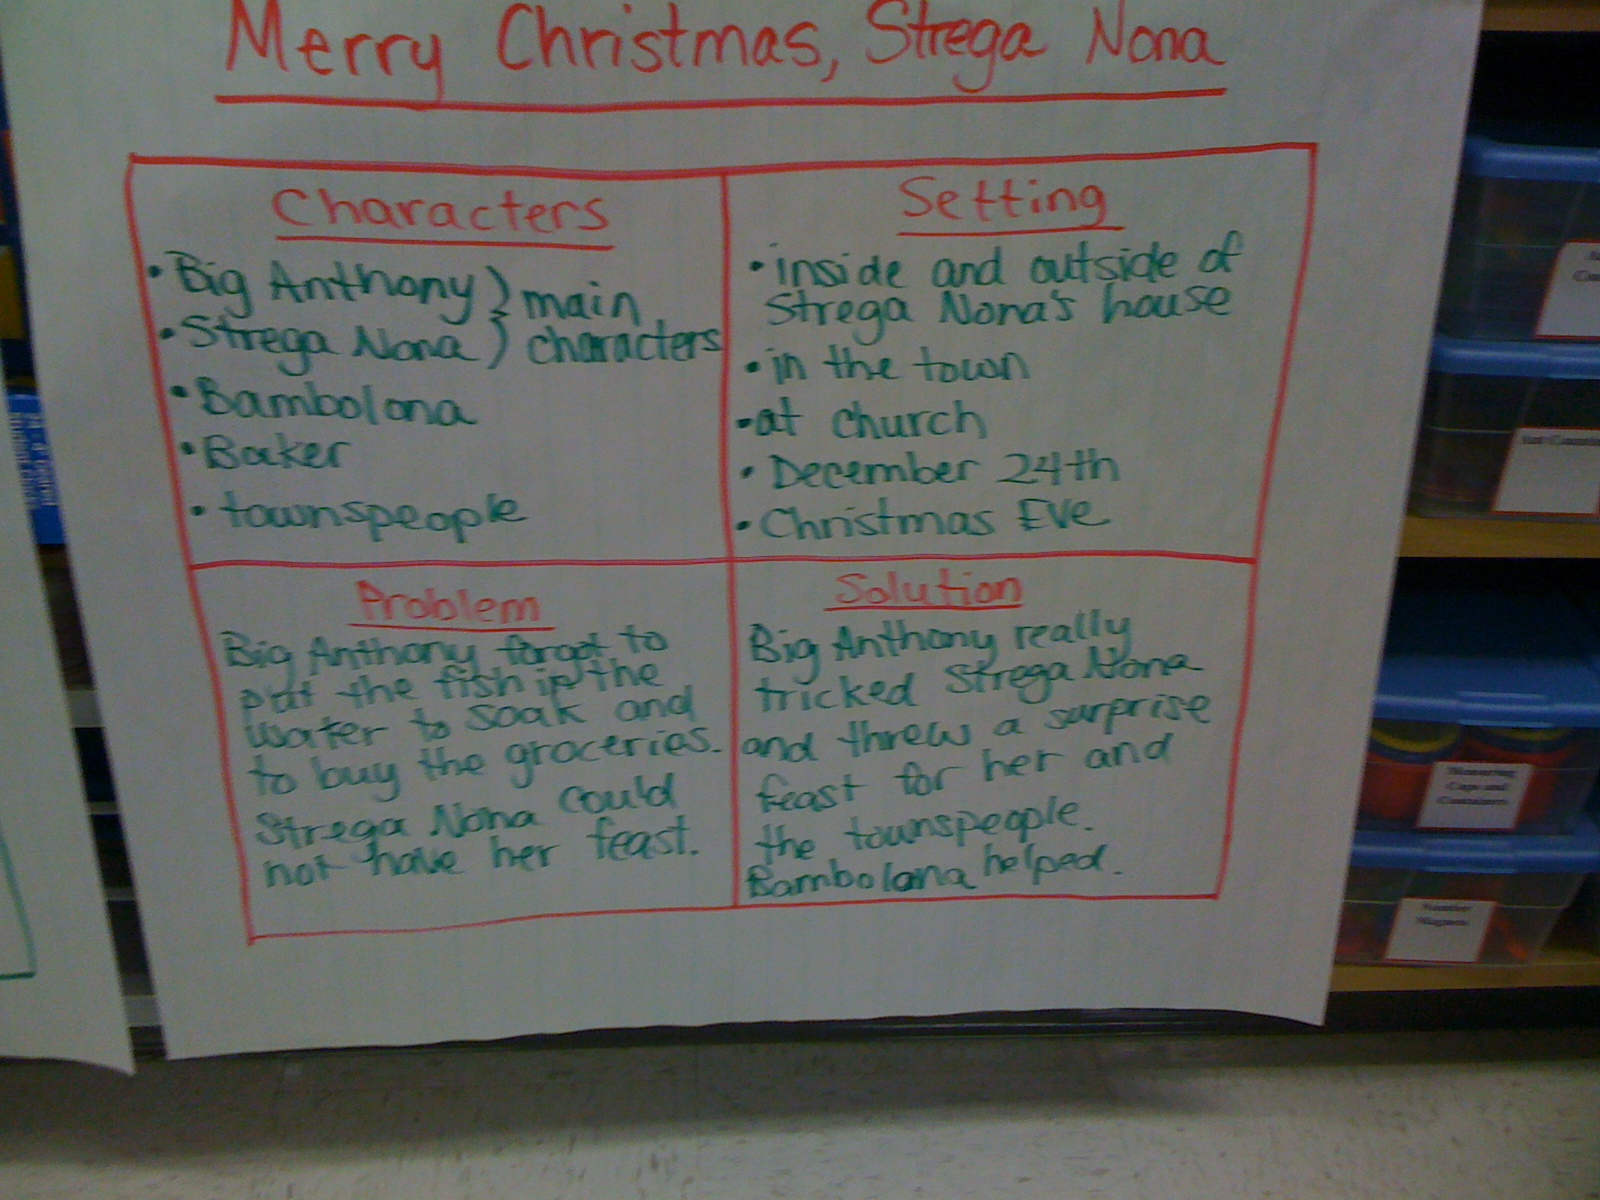 Merry Christmas, Strega Nona
Characters
• Big Anthony } main
• Strega Nona } characters
• Bambolona
• Baker
• townspeople
Setting
• inside and outside of
Strega Nona's house
• in the town
• at church
• December 24th
• Christmas Eve
Problem
Big Anthony forgot to
put the fish in the
water to soak and
to buy the groceries.
Strega Nona could
not have her feast.
Solution
Big Anthony really
tricked Strega Nona
and threw a surprise
feast for her and
the townspeople.
Bambolona helped.
Measuring
Cups and
Containers
Number
Magnets